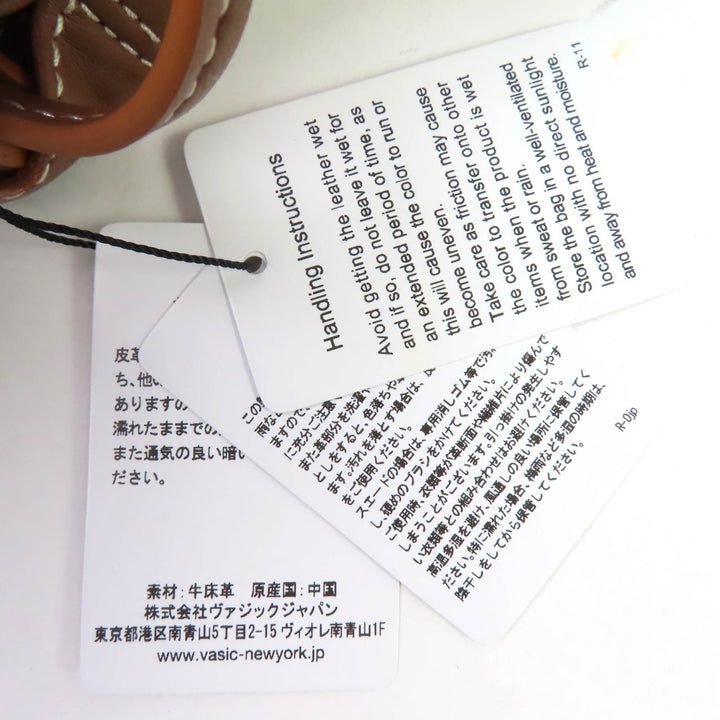 Handling Instructions
Avoid getting the leather wet
and if so, do not leave it wet for
an extended period of time, as
this will cause the color to run or
become uneven.
Take care as friction may cause
the color to transfer onto other
items when the product is wet
from sweat or rain.
Store the bag in a well-ventilated
location with no direct sunlight
and away from heat and moisture.
R-11
皮革
ち、他の
ありますの
濡れたままでの
また通気の良い暗い
ださい。
素材:牛床革 原産国:中国
株式会社ヴァジックジャパン
東京都港区南青山5丁目2-15 ヴィオレ南青山1F
www.vasic-newyork.jp
この
雨な
ますので
に充分ご注意
また革部分を洗濯
としをすると、色落ち
ます。汚れを落とす場合は、
をご使用ください。
スエードの場合は、専用消しゴム等で汚
し、硬めのブラシをかけてください。
ご使用時、衣類等が革断面や繊維片により傷んで
しまうことがございます。引っ掛けの発生しやす
い衣類等との組み合わせはお避けください。
高温多湿を避け、風通しの良い場所に保管してく
ださい。特に濡れた場合、梅雨など多湿の時期は、
陰干しをしてから保管してください。
R-Djp